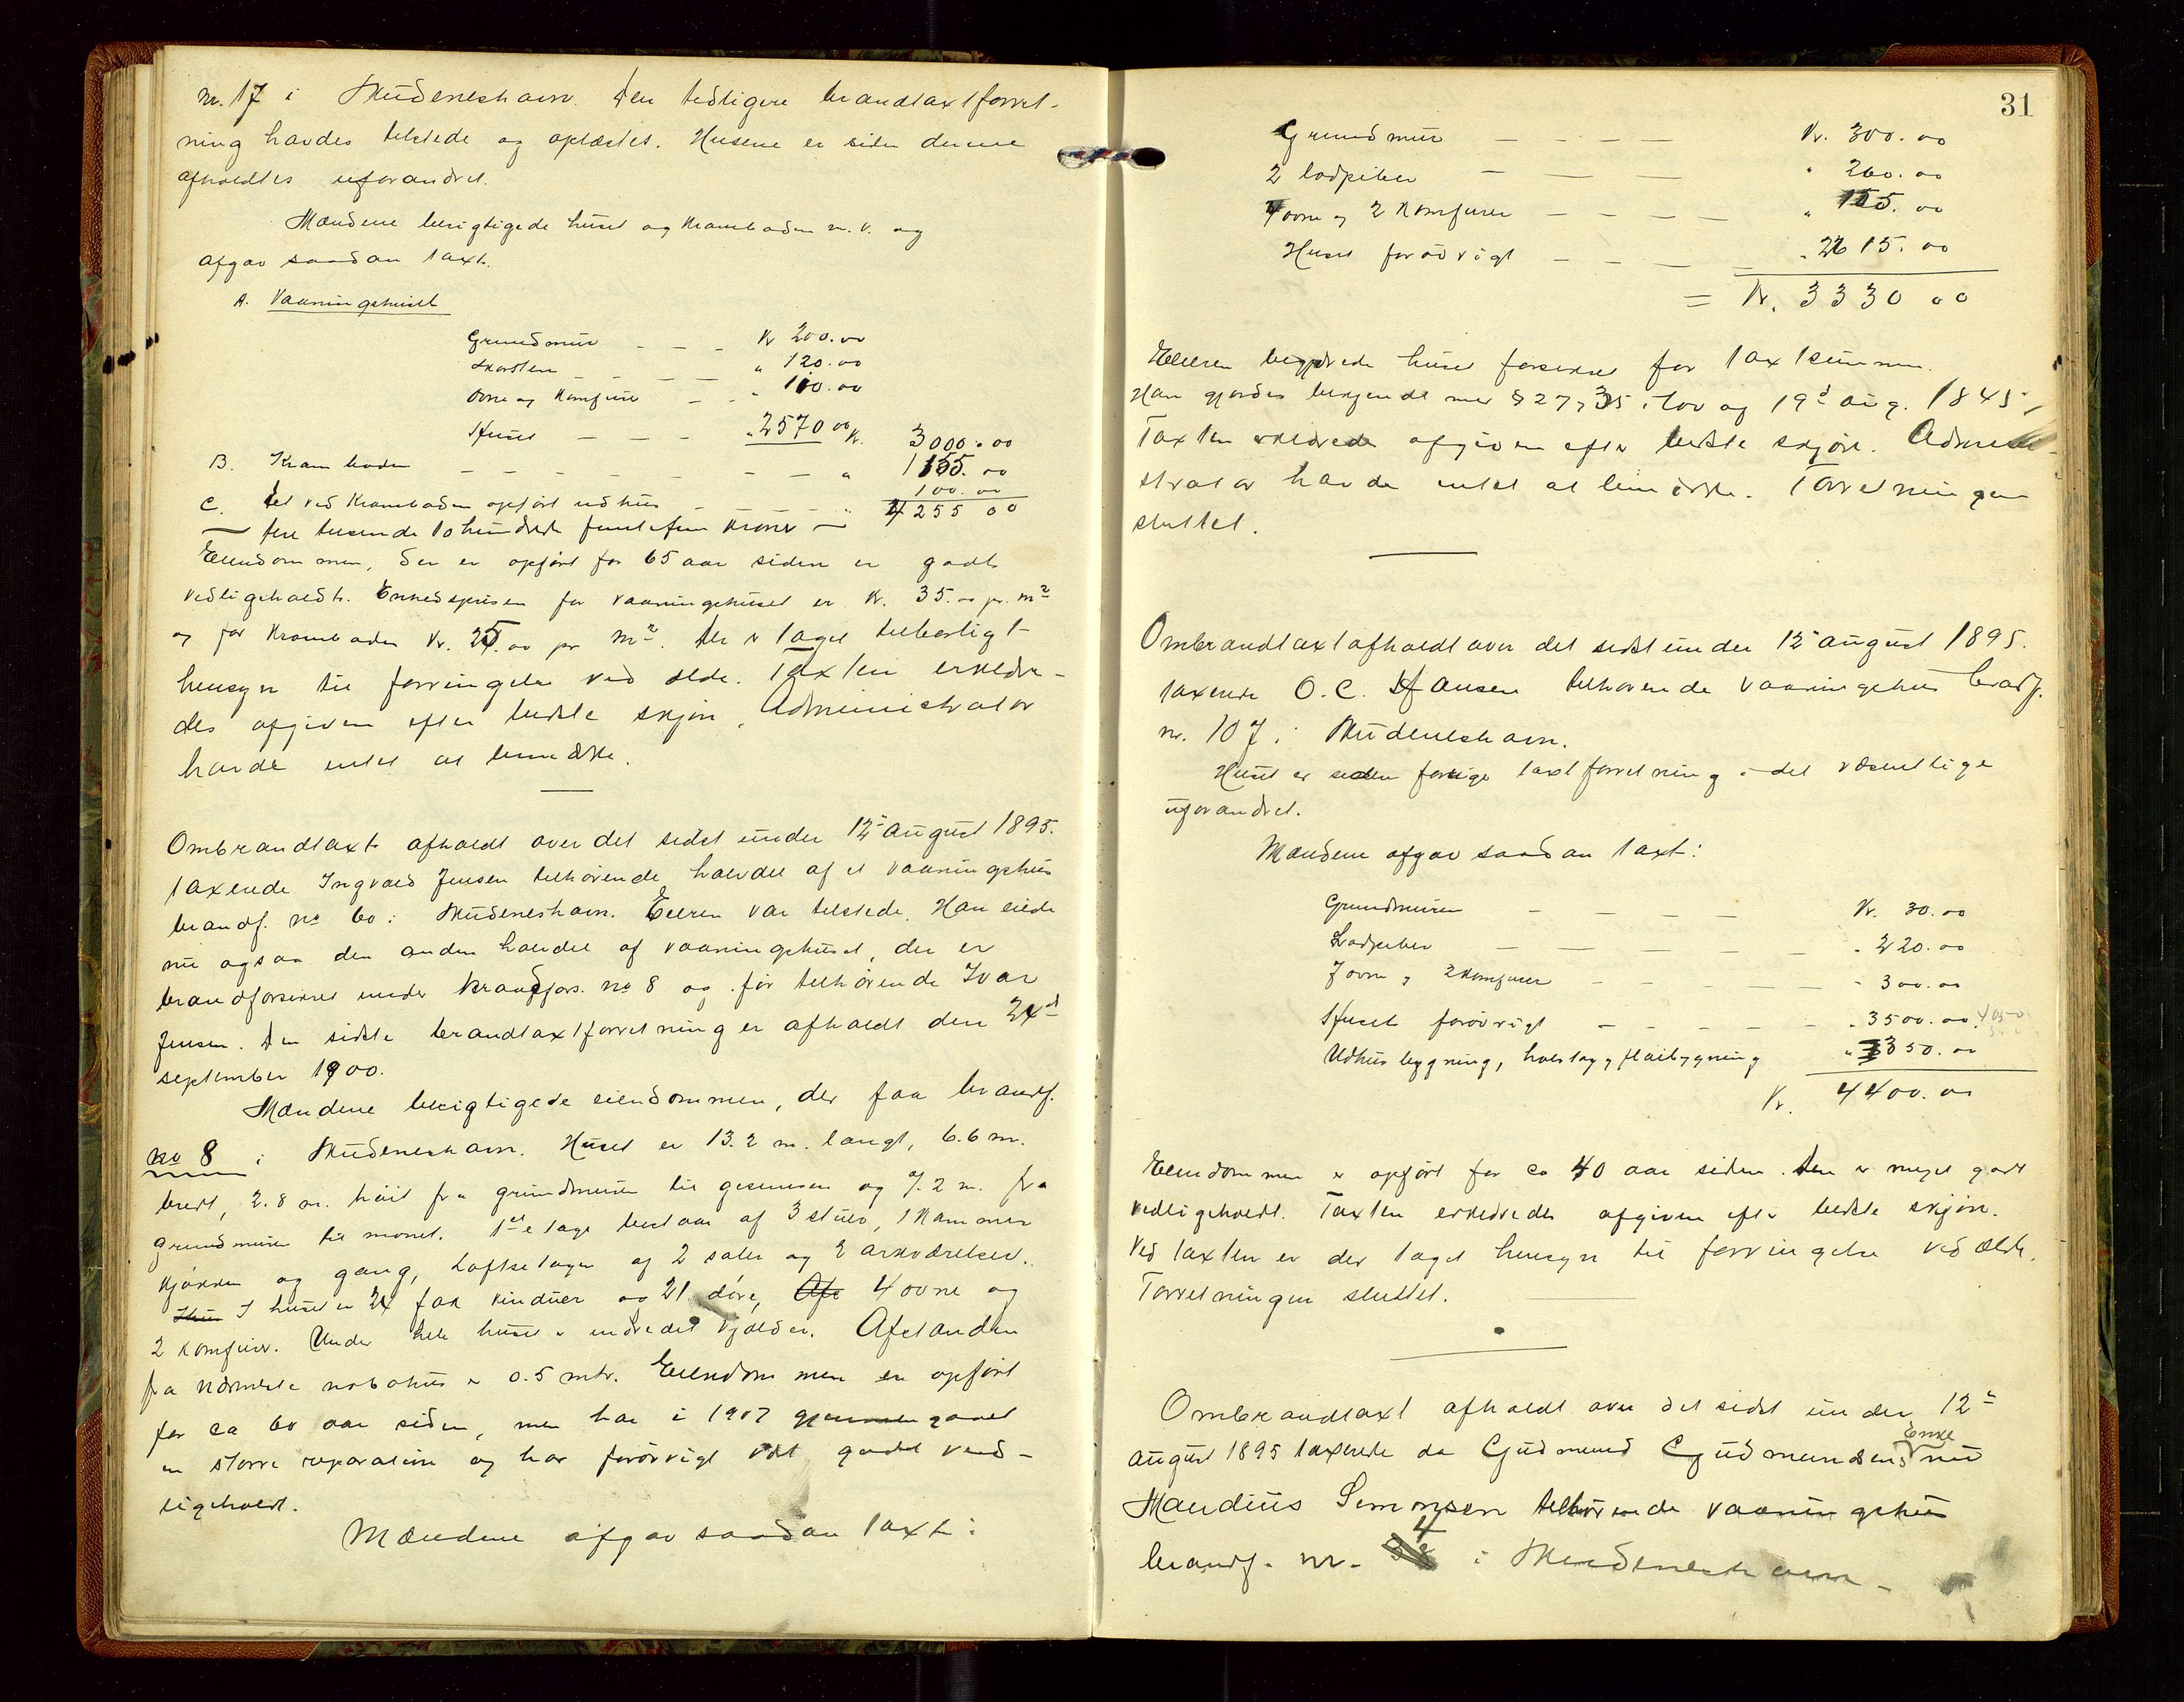 nr. 17 i Skudeneshavn. Den tidligere brandtaxtforret-
ning havdes tilstede og oplæstes. Husene er siden denne
afholdtes uforandret.
Mændene besigtigede huset og Kramboden m. v. og
afgav saadan taxt.
A. Vaaningshuset
Grundmur - - - Kr 200.00
Skorsten - - - - " 120.00
Ovne og Komfurer - - " 110.00
Huset - - - " 2570 00 Kr. 3000.00
B. Kramboden - - - - - - - " 1155.00
C. Det ved Kramboden opført udhus - - - " 100.00
— fire tusende tohundrede femtifem kroner — 4255 00
Eiendommen, der er opført for 65 aar siden er godt
vedligeholdt. Enhedsprisen for vaaningshuset er Kr. 35.00 pr. m2
og for Kramboden Kr. 25.00 pr m2. Der er taget tilbørligt
hensyn til forringelse ved ælde. Taxten erklære-
des afgiven efter bedste skjøn. Administrator
havde intet at bemærke.
Ombrandtaxt afholdt over det sidst under 12te august 1895.
taxerede Ingvald Jensen tilhørende halvdel af et vaaningshus
brandf. no 60 i Skudeneshavn. Eieren var tilstede. Han eiede
nu ogsaa den anden halvdel af vaaningshuset, der er
brandforsikret under brandfors. no 8 og før tilhørende Ivar
Jensen. Den sidste brandtaxtforretning er afholdt den 24d
september 1900.
Mændene besigtigede eiendommen, der faa brandf.
no 8 i Skudeneshavn. Huset er 13.2 m. langt, 6.6 m.
bredt, 2.8 m. høit fra grundmuren til gesimsen og 7.2 m. fra
grundmuren til mønet. 1ste etage bestaar af 3 stuer, 1 kammer
kjøkken og gang, Loftsetagen af 2 saler og 2 arkværelser.
I huset er 24 fag vinduer og 21 døre, 4 ovne og
2 komfurer. Under hele huset er indredet kjælder. Afstanden
fra nærmeste nabohus er 0.5 mtr. Eiendommen er opført
for ca 60 aar siden, men har i 1907 gjennemgaaet
en større reparation og har forøvrigt vært godt ved-
ligeholdt.
Mændene afgav saadan taxt:
31
Grundmur - - - - Kr. 300.00
2 ladpiber - - - " 260.00
4 ovne og 2 Komfurer - - - - " 155.00
Huset forøvrigt - - - - " 2615.00
= Kr. 3330 00
Eieren begjærede huset forsikret for taxtsummen.
Han gjordes bekjendt med § 27, 35 i lov og 19d aug. 1845,
Taxten erklærede afgiven efter bedste skjøn. Admini-
strator havde intet at bemærke. Forretningen
sluttet.
Ombrandtaxt afholdt over det sidst under 12te august 1895.
taxerede O. C. Hansen tilhørende vaaningshus brandf.
nr. 107 i Skudeneshavn.
Huset er siden forrige taxtforretning i det væsentlige
uforandret.
Mændene afgav saadan taxt:
Grundmuren - - - - Kr. 30.00
Ladpiber - - - - - " 220.00
7 ovne og 2 komfurer - - - - - - " 300.00
Huset forøvrigt - - - - - " 3500.00
Udhusbygning, halvtag og fløibygning " 350.00
Kr. 4400.00
Eiendommen er opført for ca 40 aar siden. Den er meget godt
vedligeholdt. Taxten erklæredes afgiven efter bedste skjøn.
Ved taxten er der taget hensyn til forringelse ved ælde.
Forretningen sluttet.
Ombrandtaxt afholdt over det sidst under 12te
august 1895 taxerede da Gudmund Gudmundsens Enke nu
Mandius Simonsen tilhørende vaaningshus
brandf. nr. 4 i Skudeneshavn.